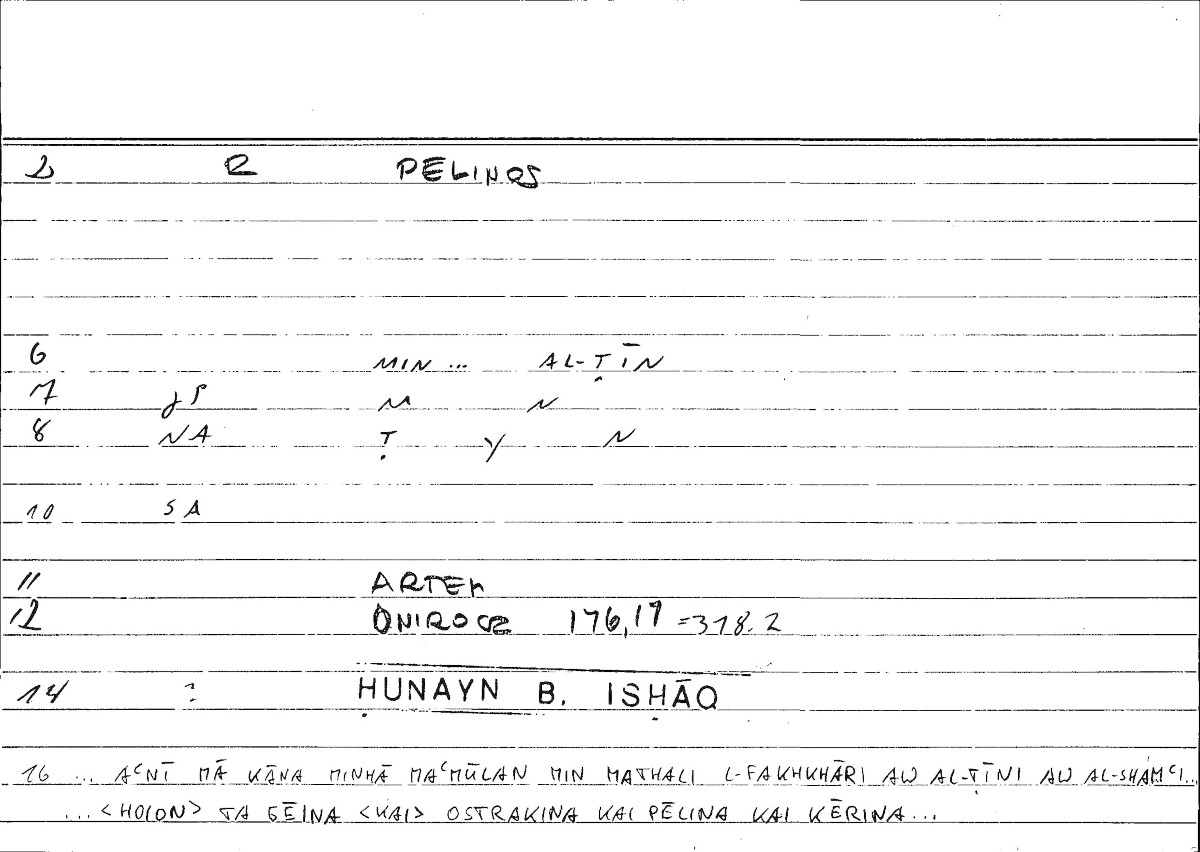 2 R PELINOS
6 MIN ... AL-ṬĪN
7 JP M N
8 NA Ṭ Y N
10 SA
11 ARTEM
12 ONIROCR 176,17 =318.2
14 : ḤUNAYN B. ISḤĀQ
16 ... AʿNĪ MĀ KĀNA MINHĀ MAʿMŪLAN MIN MATHALI L-FAKHKHĀRI AW AL-ṬĪNI AW AL-SHAMʿI...
...<HOION> TA GĒINA <KAI> OSTRAKINA KAI PĒLINA KAI KĒRINA...